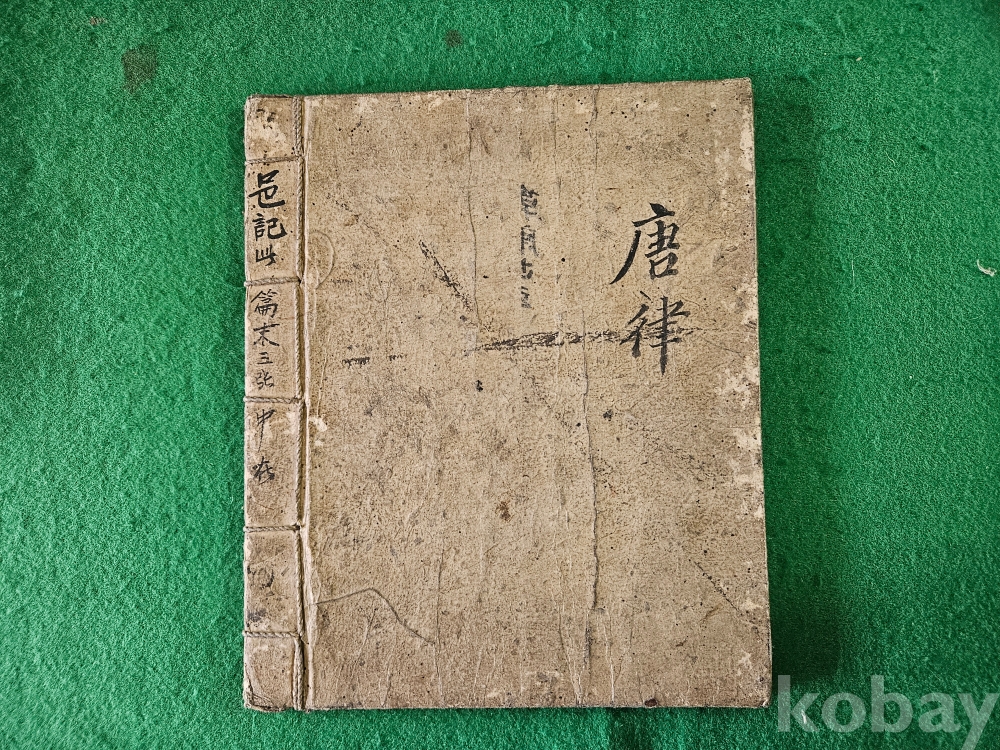 唐律
邑記此篇末三張中在
kobay